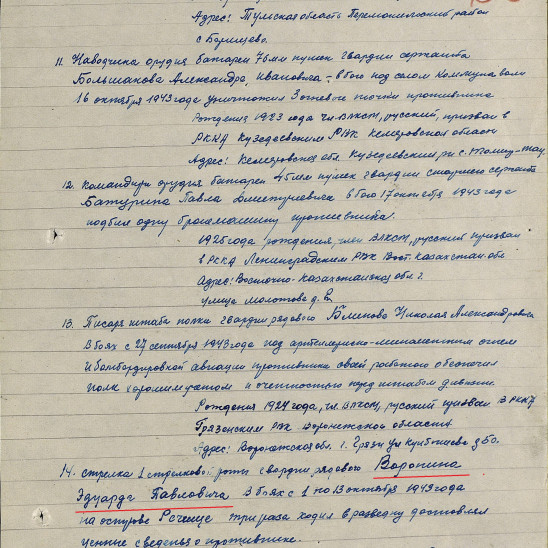 Адрес: Тульская область Перемышльский район
с Борищево.
11. Наводчика орудия батареи 76мм пушек гвардии сержанта
Большакова Александра, Ивановича – в бою под селом Коммуна Воля
16 октября 1943 года уничтожил 3 огневые точки противника
Рождения 1923 года чл ВЛКСМ, русский, призван в
РККА Кузедеевским РВК Кемеровской области
Адрес: Кемеровская обл. Кузедеевский рн с.
12. Командира орудия батареи 45мм пушек гвардии старшего сержанта
Батурина Павла Дмитриевича в бою 17 октября 1943 года
подбил одну бронемашину противника.
1925 года рождения, член ВЛКСМ, русский призван
в РККА Ленинградским РВК Вост. Казахстан обл
Адрес: Восточно-Казахстанская обл. г.
улица Молотова д.
13. Писаря штаба полка гвардии рядового Николая Александровича
В боях с 27 сентября 1943 года под артиллерийско-минометным огнем
и бомбардировкой авиации противника своей работой обеспечил
полк и отчетностью перед штабом дивизии.
Рождения 1924 года, чл. ВЛКСМ, русский призван в РККА
Грязенским РВК Воронежской области
Адрес: Воронежская обл. г. Грязи ул Куйбышева д 50.
14. стрелка 1 стрелковой роты гвардии рядового Воронина
Эдуарда Павловича В боях с 1 по 13 октября 1943 года
на острове Речище три раза ходил в разведку доставлял
ценные сведенья о противнике.